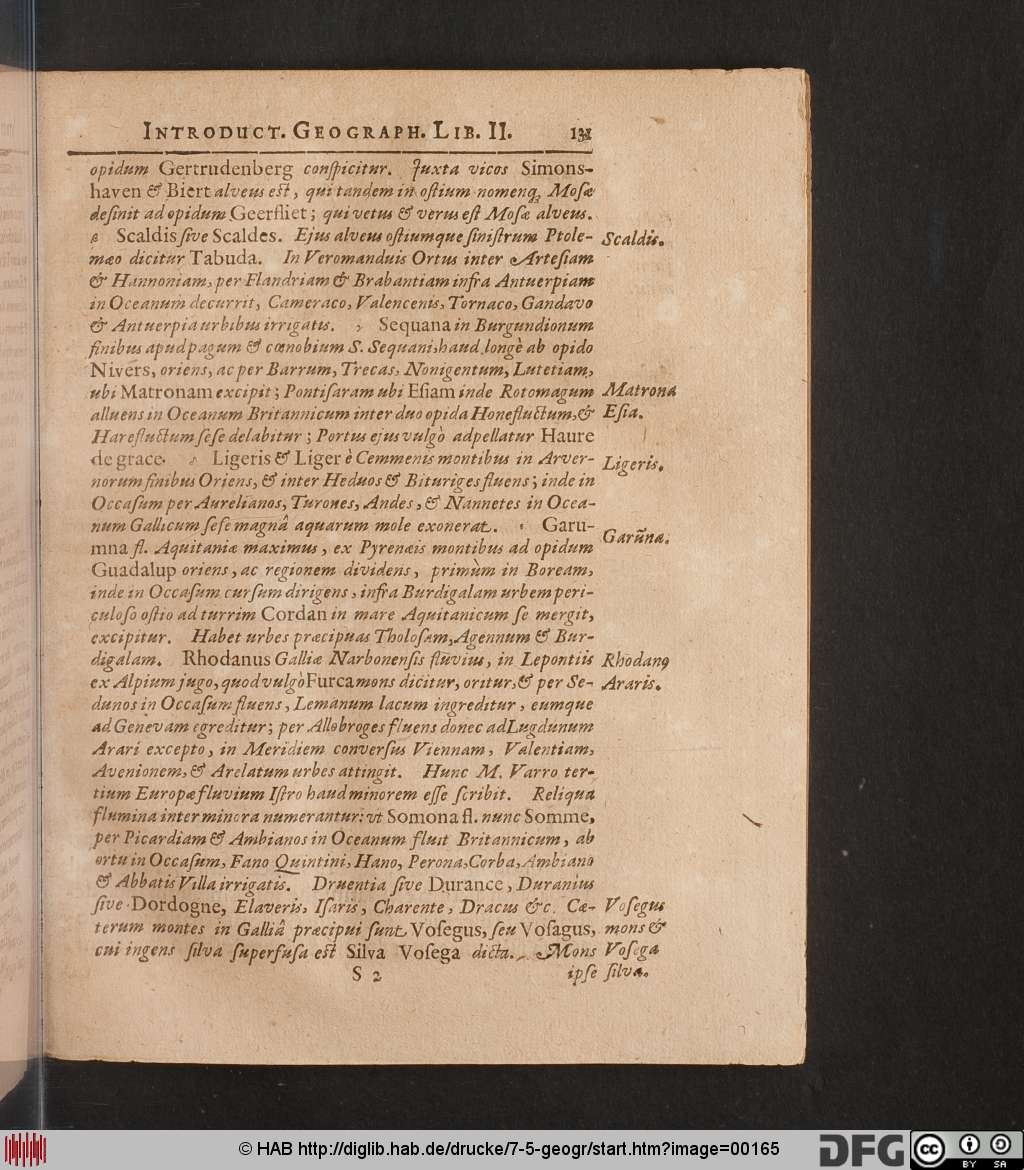 INTRODUCT. GEOGRAPH. LIB. II. 131
opidum Gertrudenberg conſpicitur. Juxta vicos Simons-
haven & Biert alveus eſt, qui tandem in oſtium nomenq; Moſæ
deſinit ad opidum Geerfliet; qui vetus & verus eſt Moſæ alveus.
Scaldis ſive Scaldes. Ejus alveus oſtiumque ſiniſtrum Ptole- Scaldis.
mæo dicitur Tabuda. In Veromanduis Ortus inter Arteſiam
& Hannoniam, per Flandriam & Brabantiam infra Antuerpiam
in Oceanum decurrit, Cameraco, Valencenis, Tornaco, Gandavo
& Antuerpia urbibus irrigatis. Sequana in Burgundionum
finibus apud pagum & cœnobium S. Sequani, haud longè ab opido
Nivers, oriens, ac per Barrum, Trecas, Nonigentum, Lutetiam,
ubi Matronam excipit; Pontiſaram ubi Eſiam inde Rotomagum Matrona
alluens in Oceanum Britannicum inter duo opida Honefluctum, & Eſia.
Harefluctum ſeſe delabitur; Portus ejus vulgò adpellatur Haure
de grace. Ligeris & Liger è Cemmenis montibus in Arver- Ligeris.
norum finibus Oriens, & inter Heduos & Bituriges fluens; inde in
Occaſum per Aurelianos, Turones, Andes, & Nannetes in Ocea-
num Gallicum ſeſe magnâ aquarum mole exonerat. Garu- Garūna.
mna fl. Aquitaniæ maximus, ex Pyrenæis montibus ad opidum
Guadalup oriens, ac regionem dividens, primùm in Boream,
inde in Occaſum curſum dirigens, infra Burdigalam urbem peri-
culoſo oſtio ad turrim Cordan in mare Aquitanicum ſe mergit,
excipitur. Habet urbes præcipuas Tholoſam, Agennum & Bur-
digalam. Rhodanus Galliæ Narbonenſis fluvius, in Lepontiis Rhodanꝰ
ex Alpium jugo, quod vulgò Furca mons dicitur, oritur, & per Se- Araris.
dunos in Occaſum fluens, Lemanum lacum ingreditur, eumque
ad Genevam egreditur; per Allobroges fluens donec ad Lugdunum
Arari excepto, in Meridiem converſus Viennam, Valentiam,
Avenionem, & Arelatum urbes attingit. Hunc M. Varro ter-
tium Europæ fluvium Iſtro haud minorem eſſe ſcribit. Reliqua
flumina inter minora numerantur: vt Somona fl. nunc Somme,
per Picardiam & Ambianos in Oceanum fluit Britannicum, ab
ortu in Occaſum, Fano Quintini, Hano, Perona, Corba, Ambiano
& Abbatis Villa irrigatis. Druentia ſive Durance, Duranius
ſive Dordogne, Elaveris, Iſaris, Charente, Dracus &c. Cæ- Voſegus
terum montes in Galliâ præcipui ſunt Voſegus, ſeu Voſagus, mons &
cui ingens ſilva ſuperfuſa eſt Silva Voſega dicta. Mons Voſega
S 2 ipſe ſilva.
© HAB http://diglib.hab.de/drucke/7-5-geogr/start.htm?image=00165 DFG cc BY SA